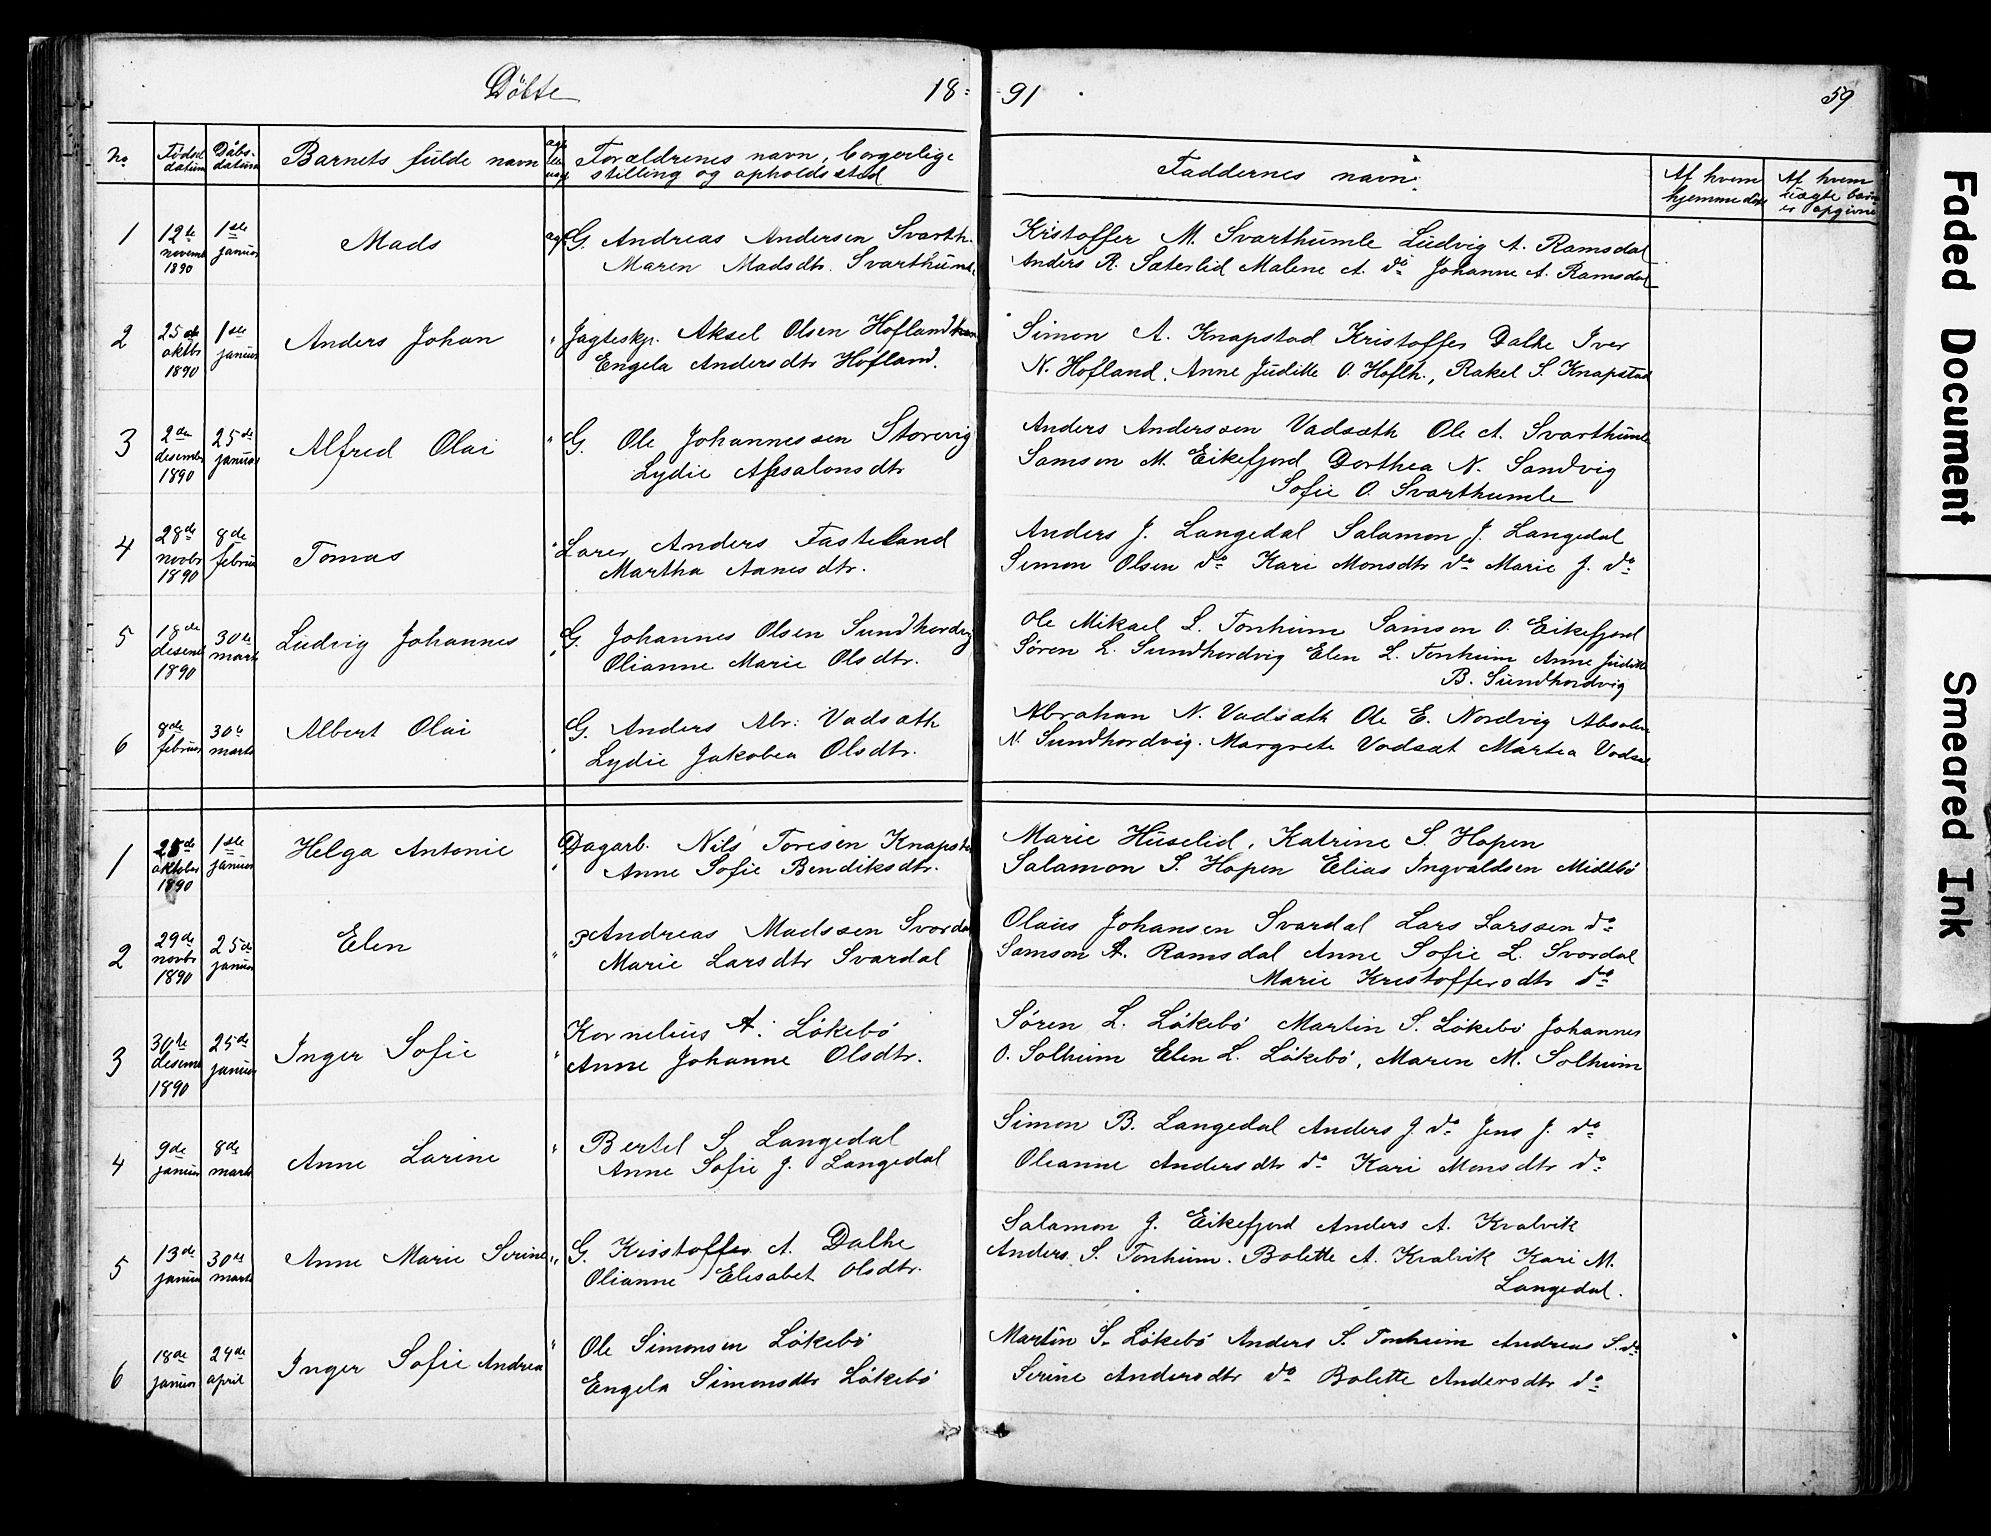 Döbte 18 91 59
No Födsel datum Dåbs datum Barnets fulde navn Forældrenes navn, borgerlige stilling og opholdssted Faddernes navn Af hvem hjemmedöbt Af hvem uægte barn er opgivne
1 12te novemb 1890 1ste januar Mads G. Andreas Andersen Svarth.
Maren Madsdtr. Svarthuml.
Kristoffer M. Svarthumle Ludvig A. Ramsdal
Anders R. Sæterlid Malene A. do Johanne A. Ramsdal
2 25de oktbr 1890 1ste januar Anders Johan Jagteskp. Aksel Olsen Hofland
Engela Andersdtr Hofland.
Simon A. Knapstad Kristoffer Dalke Iver
N. Hofland. Anne Juditte O. Hoflh., Rakel S. Knapstad
3 2den desember 1890 25de januar Alfred Olai G. Ole Johannessen Storevig
Lydie Absalonsdtr
Anders Anderssen Vadsæth Ole A. Svarthumle
Samson M. Eikefjord Dorthea N. Sandvig
Sofie O. Svarthumle
4 28de novbr 1890 8de februar Tomas Lærer Anders Fasteland
Martha Aanesdtr.
Anders J. Langedal Salamon J. Langedal
Simon Olsen do Kari Monsdtr do Marie J. do
5 18de desemb 1890 30te marts Ludvig Johannes G. Johannes Olsen Sundhordvig
Olianne Marie Olsdtr.
Ole Mikael L. Tonheim Samson O. Eikefjord
Søren L. Sundhordvig Elen L. Tonheim Anne Juditte
B. Sundhordvig
6 8de februar 30te marts Albert Olai G. Anders Abr. Vadsæth
Lydie Jakobea Olsdtr.
Abraham N. Vadsæth Ole E. Nordvig Absolon
N. Sundhordvig. Margrete Vadsæt Martea Vadsæt
1 25de oktober 1890 1ste januar Helga Antonie Dagarb. Nils Toresen Knapstad
Anne Sofie Bendiksdtr.
Marie Huselid, Katrine S. Hopen
Salamon S. Hopen Elias Ingvaldsen Midtbö
2 29de novbr 1890 25de januar Elen Andreas Madssen Svardal
Marie Larsdtr Svardal
Olaus Johansen Svardal Lars Larssen do
Samson A. Ramsdal Anne Sofie L. Svardal
Marie Kristoffersdtr do
3 30te desemb 1890 25de januar Inger Sofie Kornelius A. Lökebö
Anne Johanne Olsdtr.
Søren L. Lökebö Martin S. Lökebö Johannes
O. Solheim Elen L. Lökebö, Maren M. Solheim
4 9de januar 8de marts Anne Larine Bertel S. Langedal
Anne Sofie J. Langedal
Simon B. Langedal Anders J do Jens J. do
Olianne Andersdtr do Kari Monsdtr do
5 13de januar 30de marts Anne Marie Serine G. Kristoffer A. Dalke
Olianne Elisabet Olsdtr.
Salamon J. Eikefjord Anders A. Kvalvik
Anders S. Tonheim. Bolette A. Kvalvik Kari M.
Langedal.
6 18de januar 24de april Inger Sofie Andrea Ole Simonsen Lökebö
Engela Simonsdtr Lökebö
Martin S. Lökebö Anders S. Tonheim Andreas S. do
Serine Andersdtr do Bolette Andersdtr do
Faded Document
Smeared Ink